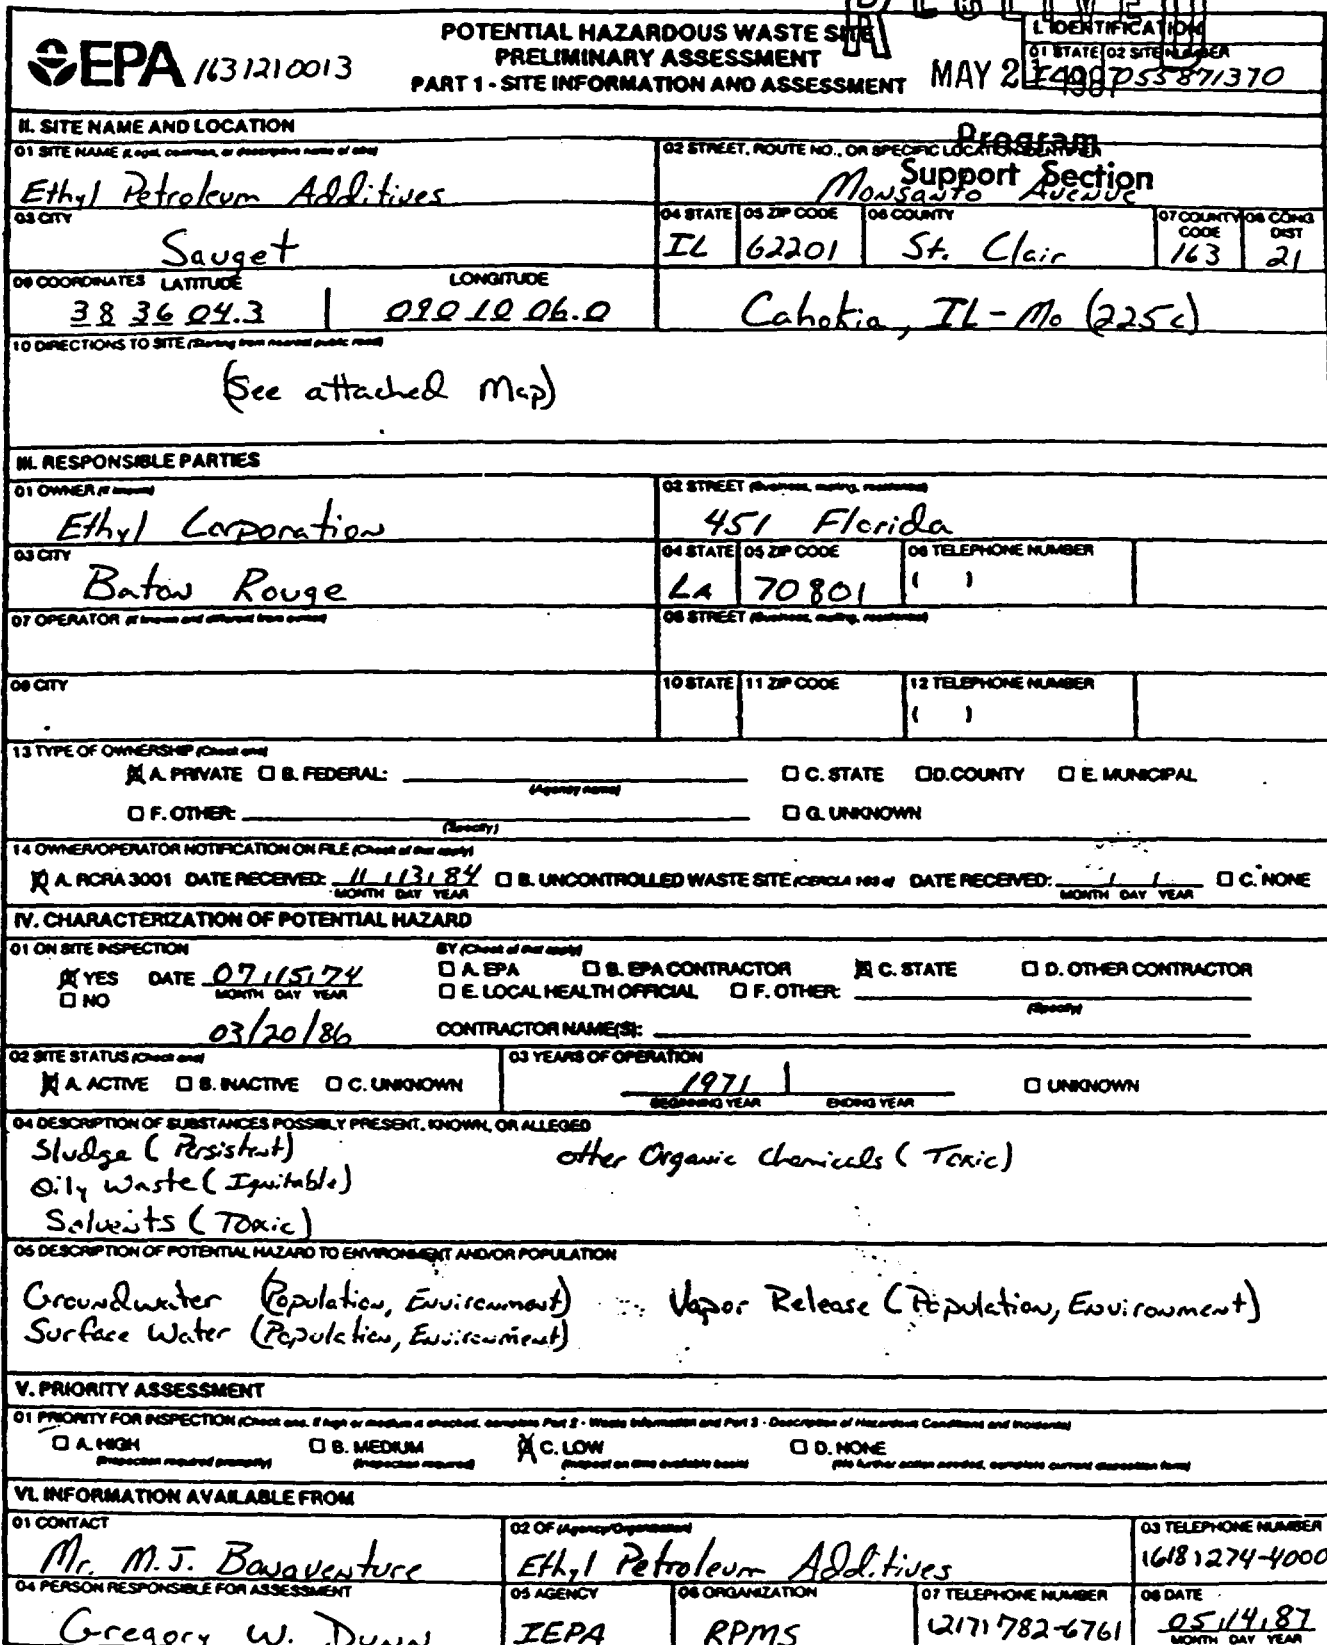 RECEIVED
EPA 1631210013
POTENTIAL HAZARDOUS WASTE SITE
PRELIMINARY ASSESSMENT
PART 1 - SITE INFORMATION AND ASSESSMENT
MAY 2 1987
I. IDENTIFICATION
01 STATE 02 SITE NUMBER
055871370
II. SITE NAME AND LOCATION
01 SITE NAME (Legal, common, or descriptive name of site)
Ethyl Petroleum Additives
02 STREET, ROUTE NO., OR SPECIFIC LOCATION IDENTIFIER
Monsanto Avenue
Program
Support Section
03 CITY
Sauget
04 STATE
IL
05 ZIP CODE
62201
06 COUNTY
St. Clair
07 COUNTY CODE
163
08 CONG DIST
21
09 COORDINATES LATITUDE LONGITUDE
38 36 04.3 090 10 06.0
Cahokia, IL-Mo (225c)
10 DIRECTIONS TO SITE (Starting from nearest public road)
(See attached Map)
III. RESPONSIBLE PARTIES
01 OWNER (if known)
Ethyl Corporation
02 STREET (Business, mailing, residential)
451 Florida
03 CITY
Baton Rouge
04 STATE
LA
05 ZIP CODE
70801
06 TELEPHONE NUMBER
( )
07 OPERATOR (if known and different from owner)
08 STREET (Business, mailing, residential)
09 CITY
10 STATE
11 ZIP CODE
12 TELEPHONE NUMBER
( )
13 TYPE OF OWNERSHIP (Check one)
A. PRIVATE B. FEDERAL: C. STATE D. COUNTY E. MUNICIPAL
(Agency name)
F. OTHER: G. UNKNOWN
(Specify)
14 OWNER/OPERATOR NOTIFICATION ON FILE (Check all that apply)
A. RCRA 3001 DATE RECEIVED: 11/13/84 B. UNCONTROLLED WASTE SITE (CERCLA 103 c) DATE RECEIVED: / / C. NONE
MONTH DAY YEAR MONTH DAY YEAR
IV. CHARACTERIZATION OF POTENTIAL HAZARD
01 ON SITE INSPECTION
YES DATE 07/15/74
MONTH DAY YEAR
NO
03/20/86
BY (Check all that apply)
A. EPA B. EPA CONTRACTOR C. STATE D. OTHER CONTRACTOR
E. LOCAL HEALTH OFFICIAL F. OTHER:
(Specify)
CONTRACTOR NAME(S):
02 SITE STATUS (Check one)
A. ACTIVE B. INACTIVE C. UNKNOWN
03 YEARS OF OPERATION
1971
BEGINNING YEAR ENDING YEAR
UNKNOWN
04 DESCRIPTION OF SUBSTANCES POSSIBLY PRESENT, KNOWN, OR ALLEGED
Sludge (Persistent) other Organic Chemicals (Toxic)
Oily Waste (Ignitable)
Solvents (Toxic)
05 DESCRIPTION OF POTENTIAL HAZARD TO ENVIRONMENT AND/OR POPULATION
Groundwater (Population, Environment) Vapor Release (Population, Environment)
Surface Water (Population, Environment)
V. PRIORITY ASSESSMENT
01 PRIORITY FOR INSPECTION (Check one. If high or medium is checked, complete Part 2 - Waste Information and Part 3 - Description of Hazardous Conditions and Incidents)
A. HIGH B. MEDIUM C. LOW D. NONE
(Inspection required promptly) (Inspection required) (Inspect on time available basis) (No further action needed, complete current disposition form)
VI. INFORMATION AVAILABLE FROM
01 CONTACT
Mr. M.J. Bonaventure
02 OF (Agency/Organization)
Ethyl Petroleum Additives
03 TELEPHONE NUMBER
(618) 274-4000
04 PERSON RESPONSIBLE FOR ASSESSMENT
Gregory W. Dunn
05 AGENCY
IEPA
06 ORGANIZATION
RPMS
07 TELEPHONE NUMBER
(217) 782-6761
08 DATE
05/14/87
MONTH DAY YEAR